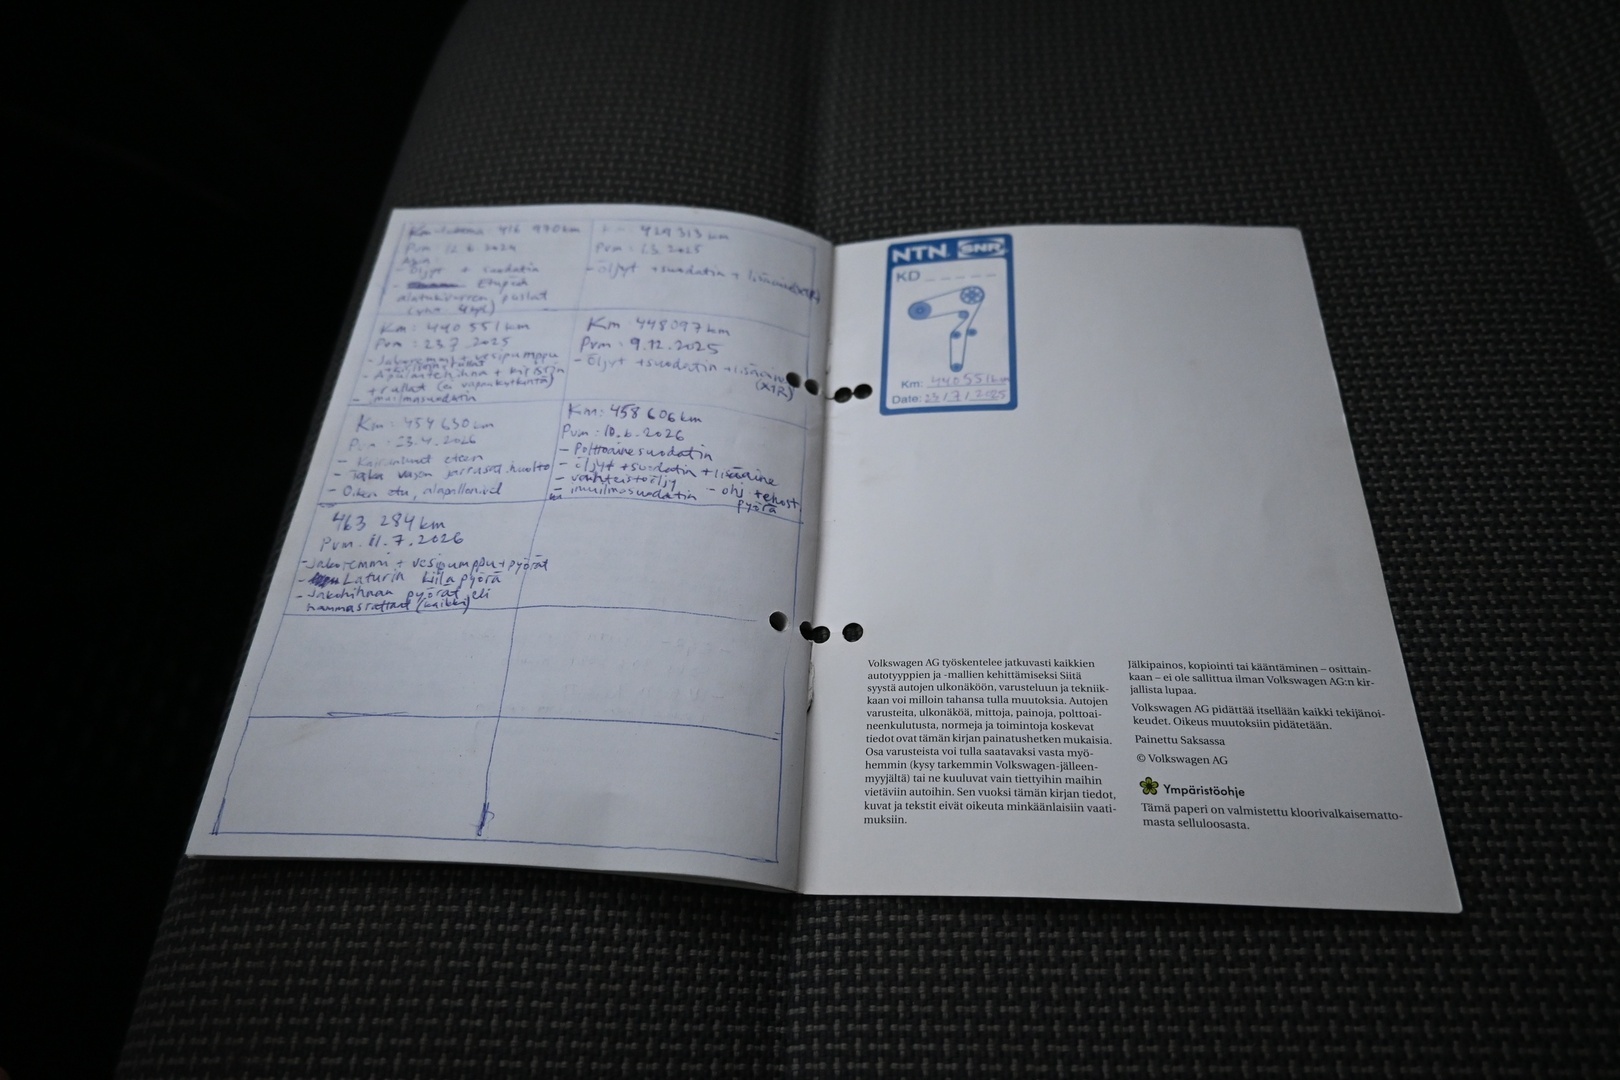 Km-lukema 416 970 km
Pvm : 12.6.2024
- Öljyt + suodatin
- Etupään
alatukivarren puslat
429 313 km
Pvm : 2.3.2025
- Öljyt + suodatin + lisäaine
Km : 440 551 km
Pvm : 23.7.2025
- Jakoremmi + vesipumppu
- Apulaitehihna + kiristin
+ rullat (ei vapaakytkintä)
- ilmansuodatin
Km 448097 km
Pvm : 9.12.2025
- Öljyt + suodatin + lisäaine
(XTR)
Km : 454 630 km
Pvm : 23.4.2026
- eteen
- Taka vasen jarrusat. huolto
- Oikea etu, alapallonivel
Km : 458 606 km
Pvm : 10.6.2026
- Polttoainesuodatin
- öljyt + suodatin + lisäaine
- vaihteistoöljy
- imuilmasuodatin - ohj. tehost.
pyörä
463 284 km
Pvm. 11.7.2026
- Jakoremmi + vesipumppu + pyörät
- Laturin kiilapyörä
- Jakohihnan pyörät eli
hammasrattaat (kaikki)
NTN SNR
KD
Km: 440551km
Date: 23/7/2025
Volkswagen AG työskentelee jatkuvasti kaikkien
autotyyppien ja -mallien kehittämiseksi Siitä
syystä autojen ulkonäköön, varusteluun ja tekniik-
kaan voi milloin tahansa tulla muutoksia. Autojen
varusteita, ulkonäköä, mittoja, painoja, polttoai-
neenkulutusta, normeja ja toimintoja koskevat
tiedot ovat tämän kirjan painatushetken mukaisia.
Osa varusteista voi tulla saatavaksi vasta myö-
hemmin (kysy tarkemmin Volkswagen-jälleen-
myyjältä) tai ne kuuluvat vain tiettyihin maihin
vietäviin autoihin. Sen vuoksi tämän kirjan tiedot,
kuvat ja tekstit eivät oikeuta minkäänlaisiin vaati-
muksiin.
Jälkipainos, kopiointi tai kääntäminen – osittain-
kaan – ei ole sallittua ilman Volkswagen AG:n kir-
jallista lupaa.
Volkswagen AG pidättää itsellään kaikki tekijänoi-
keudet. Oikeus muutoksiin pidätetään.
Painettu Saksassa
© Volkswagen AG
Ympäristöohje
Tämä paperi on valmistettu kloorivalkaisematto-
masta selluloosasta.